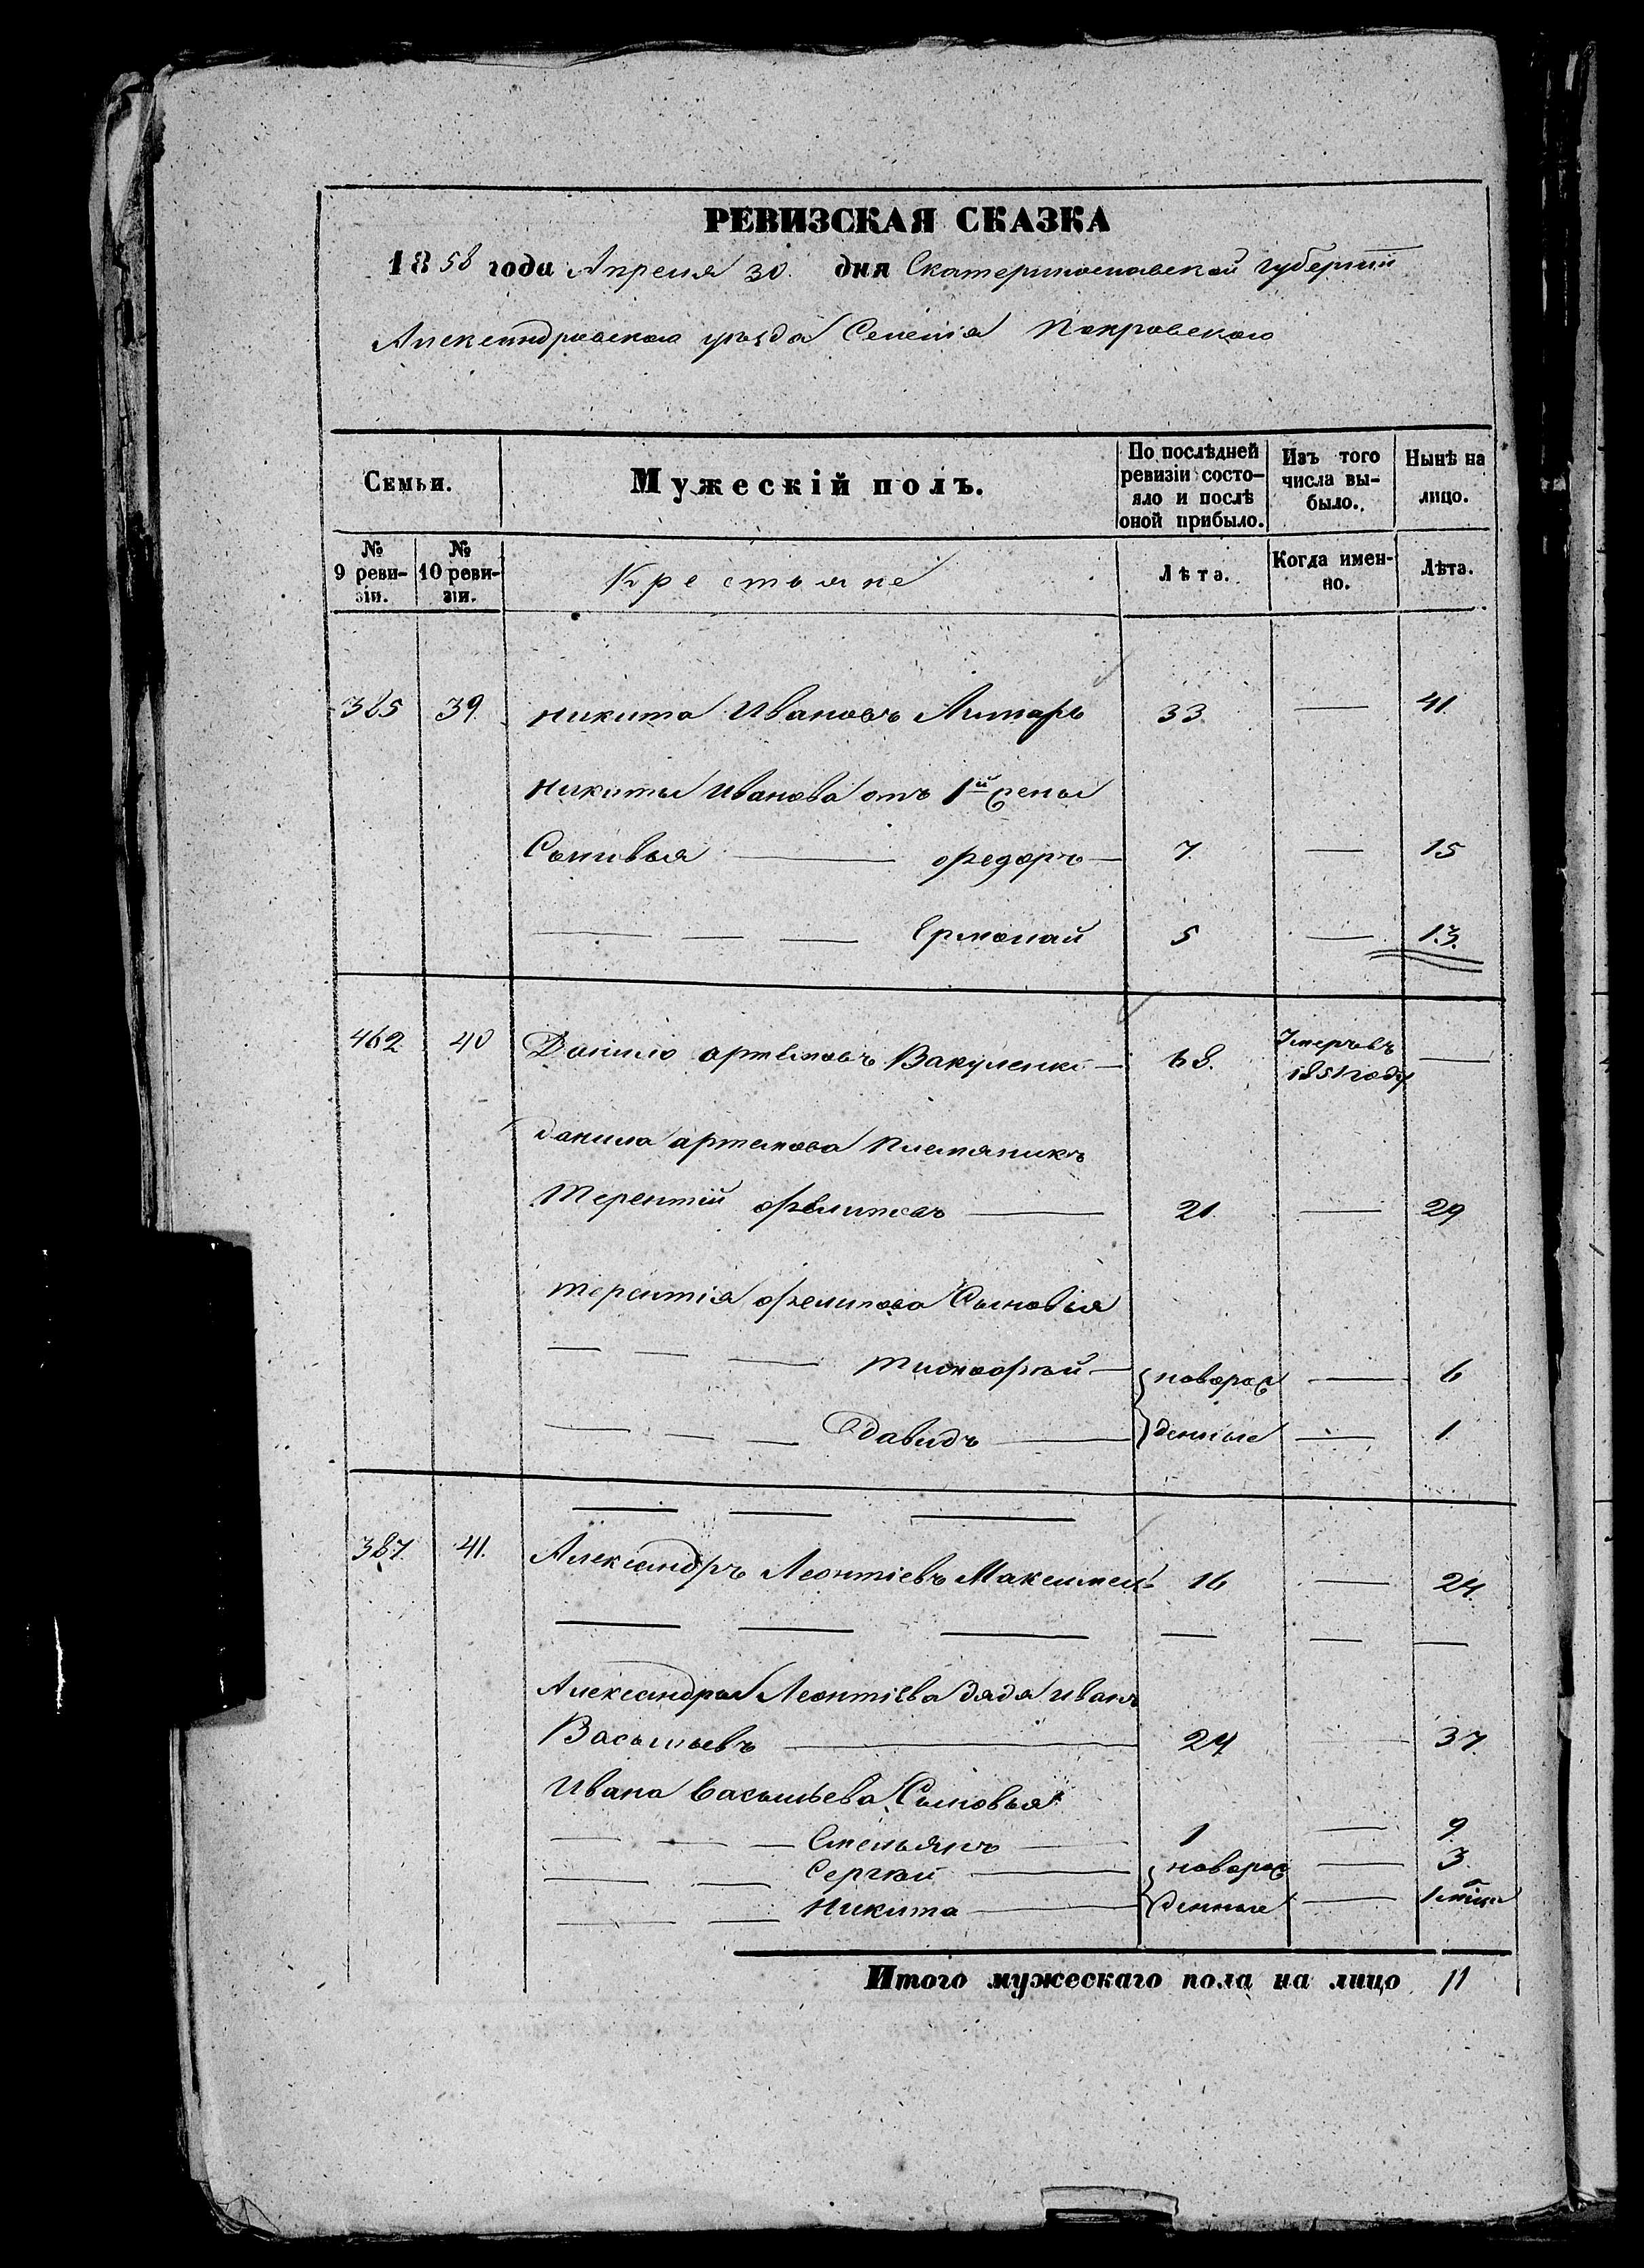 РЕВИЗСКАЯ СКАЗКА
1858 года Апреля 30. дня Екатеринославской губерніи
Александровскаго уѣзда Селенія Покровскаго
Семьи.
Мужескій полъ.
По послѣдней ревизіи состо-
яло и послѣ оной прибыло.
Изъ того числа вы-
было.
Нынѣ на лицо.
№ 9 реви-
зіи.
№ 10 реви-
зіи.
Крестьяне
Лѣта.
Когда имен-
но.
Лѣта.
385 39. Никита Ивановъ Литарь 33. — 41.
Никиты Иванова отъ 1й жены
Сыновья — Ѳедоръ — 7. — 15
— — — Ермолай 5 — 13.
462 40 Данило Артемовъ Вакуленко — 68. Умеръ въ 1851 году —
Данила Артемова племяникъ
Терентій Филиповъ — 21. — 29
Терентія Филипова Сыновья
— — — Тимофей — новорож — 6
— — — Давидъ — денные — 1.
— — —
387. 41. Александръ Леонтіевъ Максимен 16 — 24.
— — — — — —
Александра Леонтіева дядя Иванъ
Васильевъ — 29 — 37.
Ивана Васильева Сыновья
— — — Емельянъ — 1 — 9
— — Сергѣй — новорож — 3.
— — Никита — денные —
Итого мужескаго пола на лицо 11